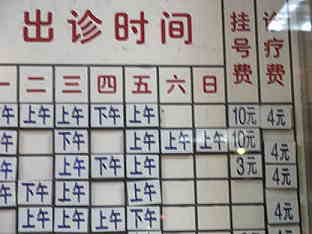 出诊时间
挂号费
诊疗费
一 二 三 四 五 六 日
午 上午 上午 下午 上午 10元 4元
午 下午 上午 上午 上午 10元 4元
午 上午 下午 上午 3元 4元
午 下午 上午 上午
上午 上午 上午 下午 4元